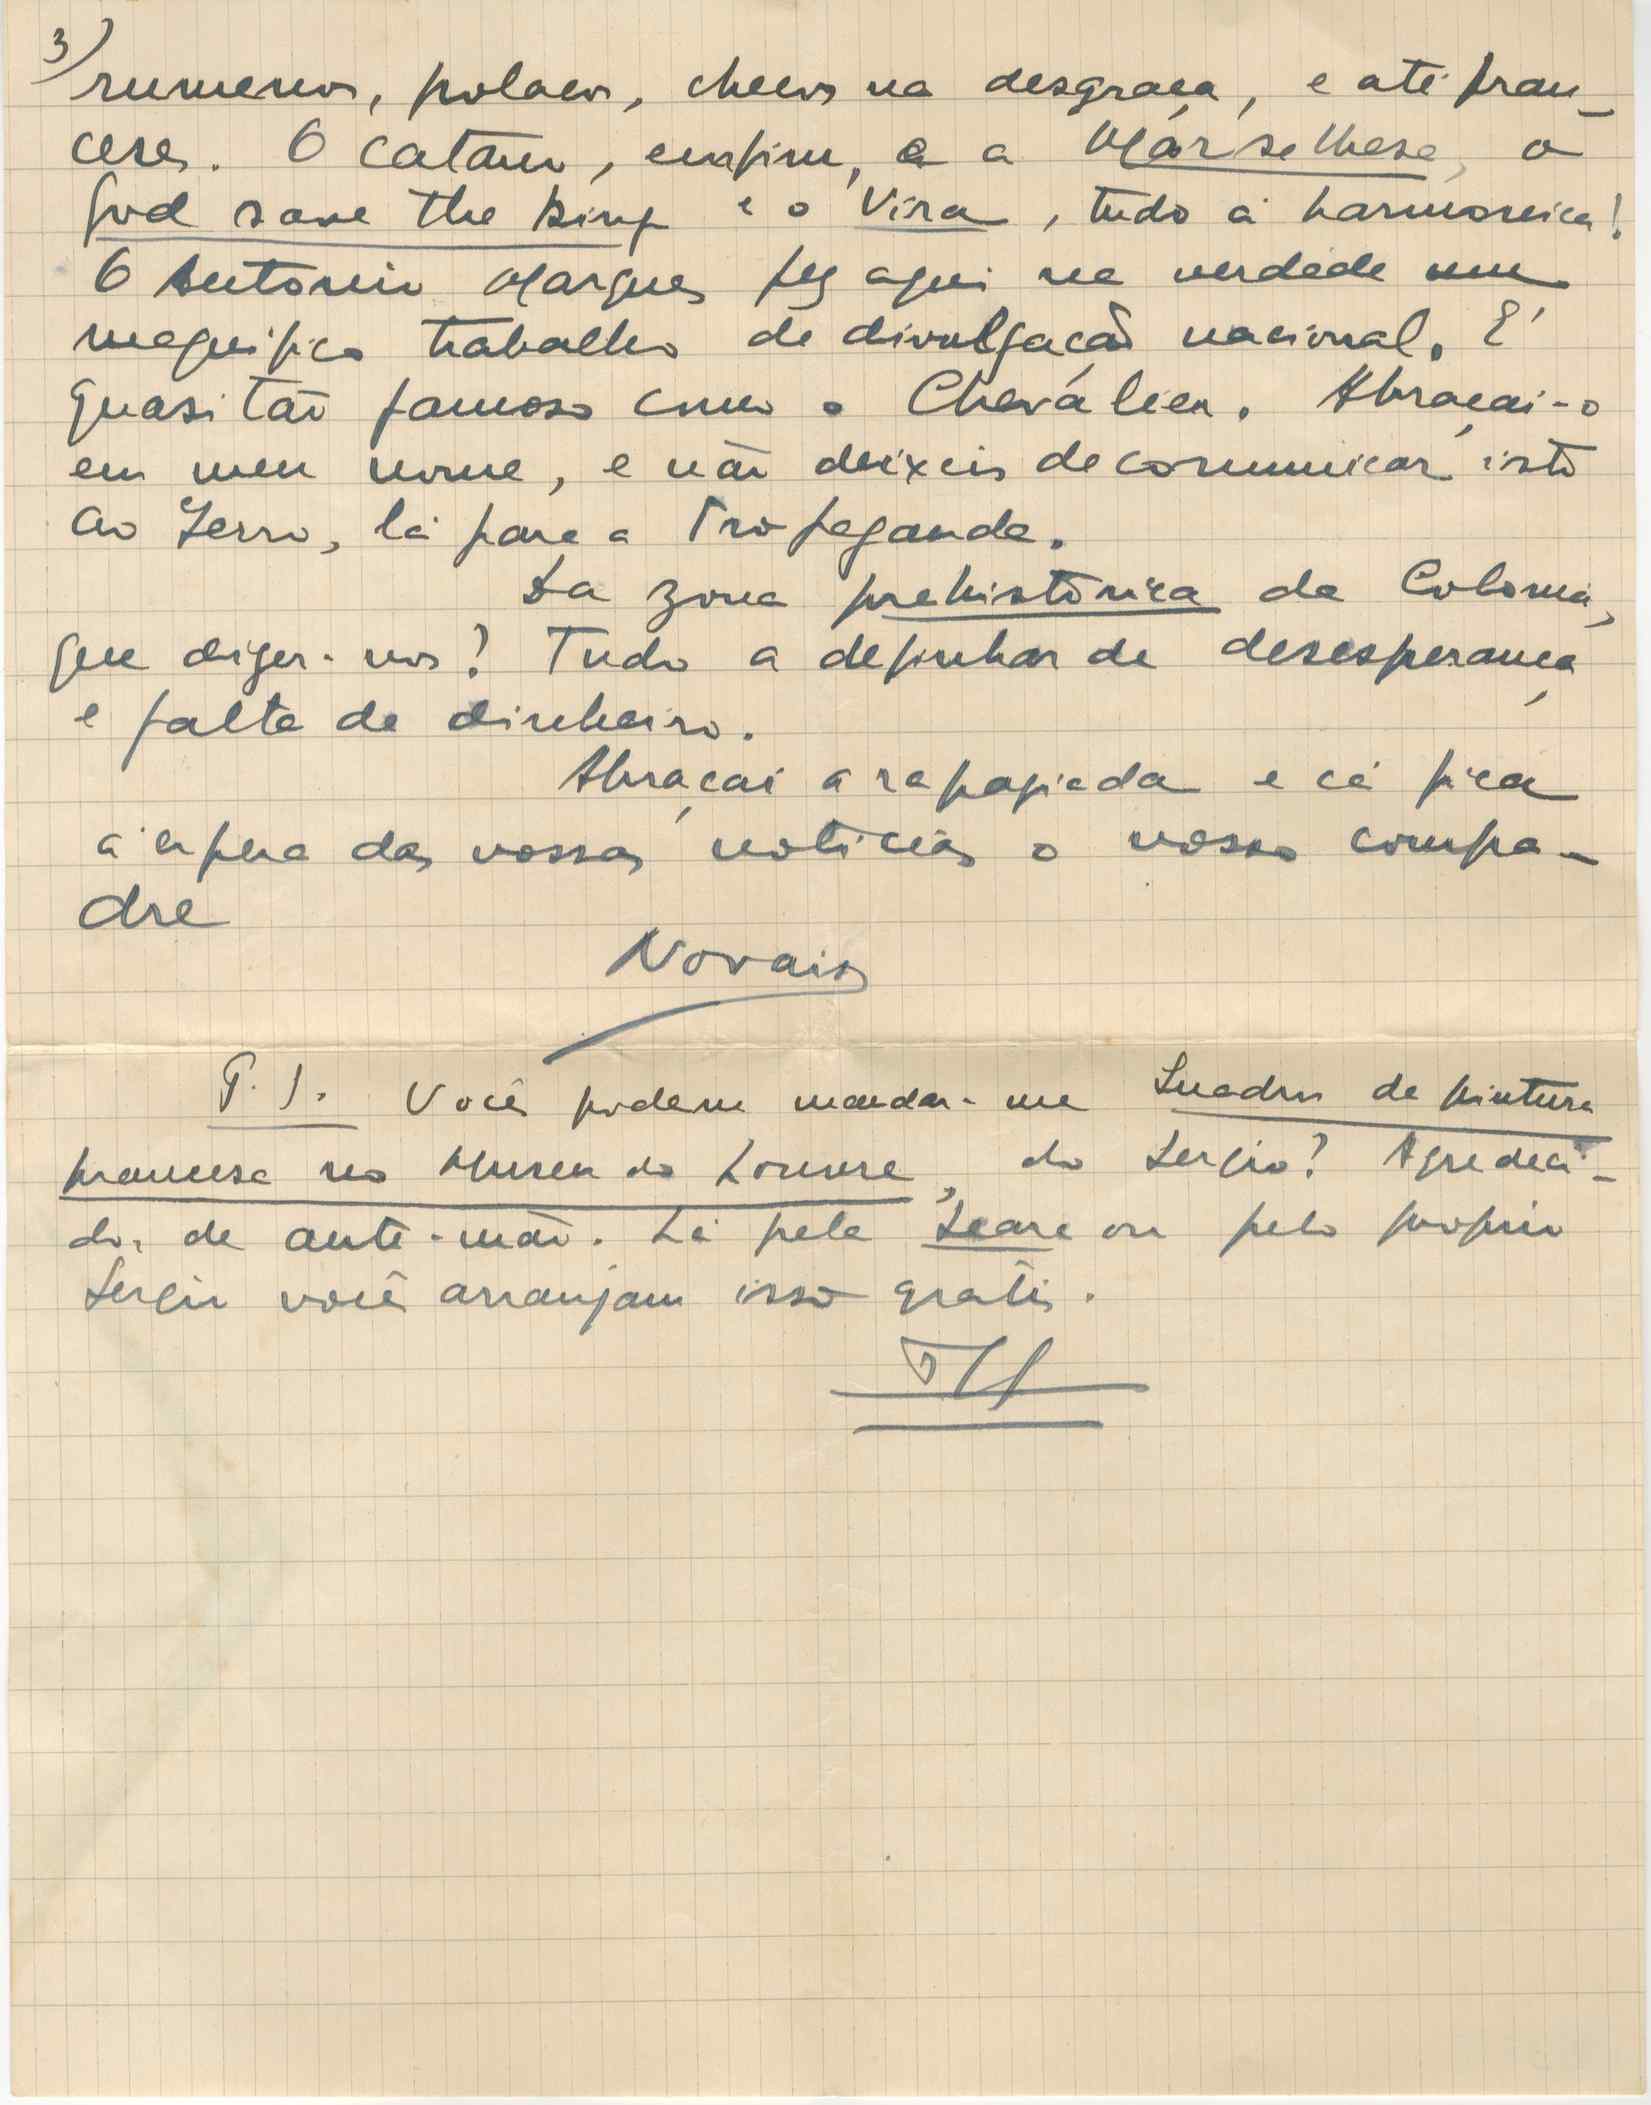 3)
rumenos, polacos, checos na desgraça, e até fran-
ceses. O catano, enfim, e a Marselhesa, o
God save the king e o Vira, tudo à harmonica!
O Antonio Marques fez aqui na verdade um
magnifico trabalho de divulgação nacional. É
quasi tão famoso como o Cheválier. Abraçai-o
em meu nome, e não deixeis de comunicar isto
ao Ferro, lá para a Propaganda.
Da zona prehistórica da Colonia,
que dizer-vos? Tudo a definhar de desesperança
e falta de dinheiro.
Abraçai a rapaziada e cá fica
à espera das vossas noticias o vosso compa-
dre
Novais
P.S. Vocês podem mandar-me Quadros de pintura
francesa no Museu do Louvre, do Sergio? Agradeci-
do, de ante-mão. Lá pela Seara ou pelo proprio
Sergio vocês arranjam isso gratis.